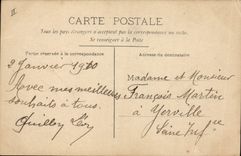 CARTE POSTALE
Tous les pays étrangers n'acceptent pas la correspondance au recto.
Se renseigner à la Poste
Partie réservée à la correspondance
Adresse du destinataire
2 Janvier 1910
Avec mes meilleurs
souhaits à tous.
Madame et Monsieur
François Martin
à Yerville
Seine Infre